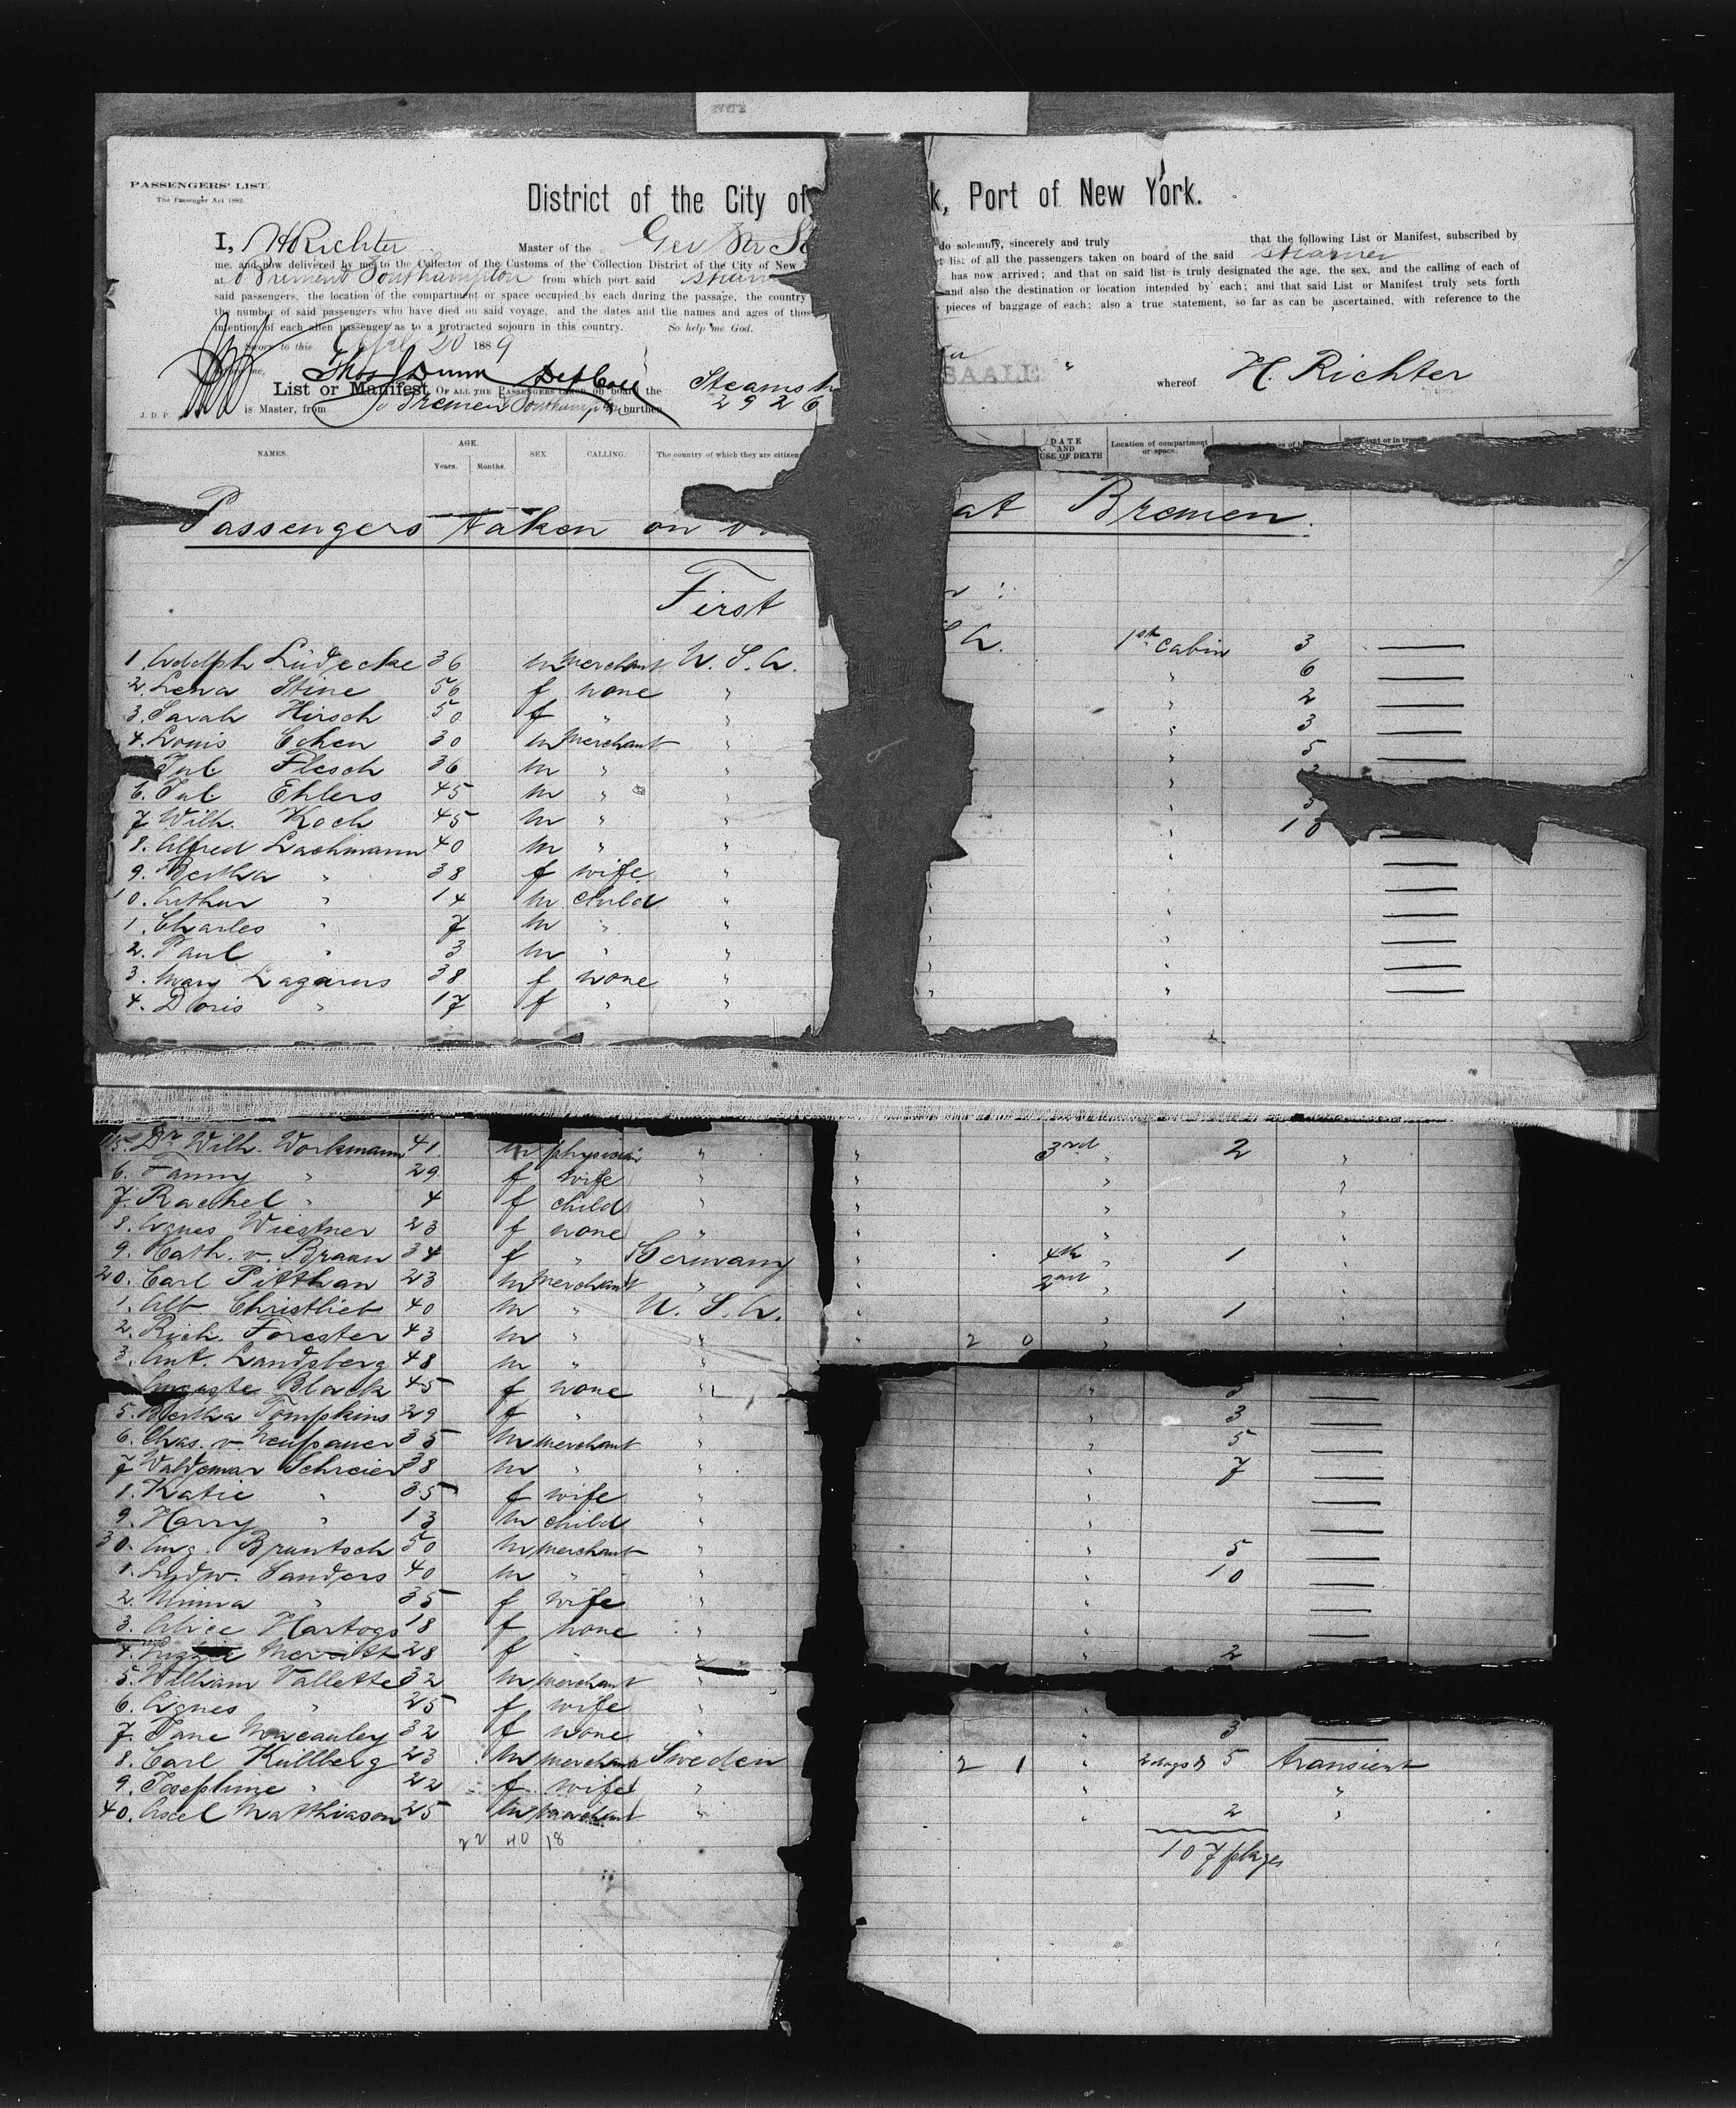 PASSENGERS' LIST.
The Passenger Act 1882.
District of the City of k, Port of New York.
I, H Richter Master of the Ger Str S do solemnly, sincerely and truly that the following List or Manifest, subscribed by
me, and now delivered by me to the Collector of the Customs of the Collection District of the City of New list of all the passengers taken on board of the said steamer
at Bremen & Southampton from which port said steamer has now arrived; and that on said list is truly designated the age, the sex, and the calling of each of
said passengers, the location of the compartment or space occupied by each during the passage, the country and also the destination or location intended by each; and that said List or Manifest truly sets forth
the number of said passengers who have died on said voyage, and the dates and the names and ages of thos pieces of baggage of each; also a true statement, so far as can be ascertained, with reference to the
intention of each alien passenger as to a protracted sojourn in this country. So help me God.
Sworn to this April 20 1889
Thos J Dunn Dep Coll
H. Richter
List or Manifest OF ALL THE PASSENGERS TAKEN on board the Steamsh SAALE " whereof
J. D. P. is Master, from Bremen Southampton burthen 2926
NAMES. AGE. Years. Months. SEX. CALLING. The country of which they are citizen DATE AND USE OF DEATH Location of compartment or space.
Passengers taken on at Bremen.
First
1. Adolph Lüdecke 36 m Merchant U. S. A. A. 1st Cabin 3 —
2. Lena Stine 56 f none " " 6 —
3. Sarah Hirsch 50 f " " " 2 —
4. Louis Cohen 30 m Merchant " " 3 —
Jul. Flesch 36 m " " " 5 —
6. Jul. Ehlers 45 m " " "
7. Wilh. Koch 45 m " " " 3
8. Alfred Lachmann 40 m " " " 10 —
9. Bertha " 38 f wife " " —
10. Arthur " 14 m child " " " —
1. Charles " 7 m " " " " —
2. Paul " 3 m " " " " —
3. Mary Lazarus 38 f none " " " —
4. Doris " 17 f " " " " —
15. Dr Wilh. Workmann 41 m physician " " 3rd " 2 "
6. Fanny " 29 f wife " " " "
7. Rachel " 4 f child " " " "
8. Agnes Wiestner 23 f none " " " "
9. Kath. v. Braun 34 f " Germany " 4th " 1 "
20. Carl Pitthan 23 m Merchant " " 2nd " "
1. Alb. Christlieb 40 m " U. S. A. " " 1 "
2. Rich. Forester 43 m " " " 20 " "
3. Ant. Landsberg 48 m " "
Auguste Black 45 f none " " 3 —
5. Bertha Tompkins 29 f " " " 3 —
6. Chas. v. Neupauer 35 m Merchant " " 5 —
7. Waldemar Schreier 38 m " " " 7 —
1. Katie " 35 f wife " " —
9. Harry " 13 m child " " —
30. Aug. Bruntsch 50 m Merchant " " 5 —
1. Ludw. Sanders 40 m " " " 10 —
2. Minna " 35 f wife " " —
3. Alice Hartogs 18 f none " " —
4. Lizzie Merritt 28 f " " " 2
5. William Vallette 32 m Merchant "
6. Agnes " 25 f wife " "
7. Jane Macauley 32 f none " " 3 —
8. Carl Kullberg 23 m Merchant Sweden 21 " 5 transient
9. Josephine " 22 f wife " " "
40. Axel Mathiason 25 m Merchant " " 2 "
22 40 18
107 pkges